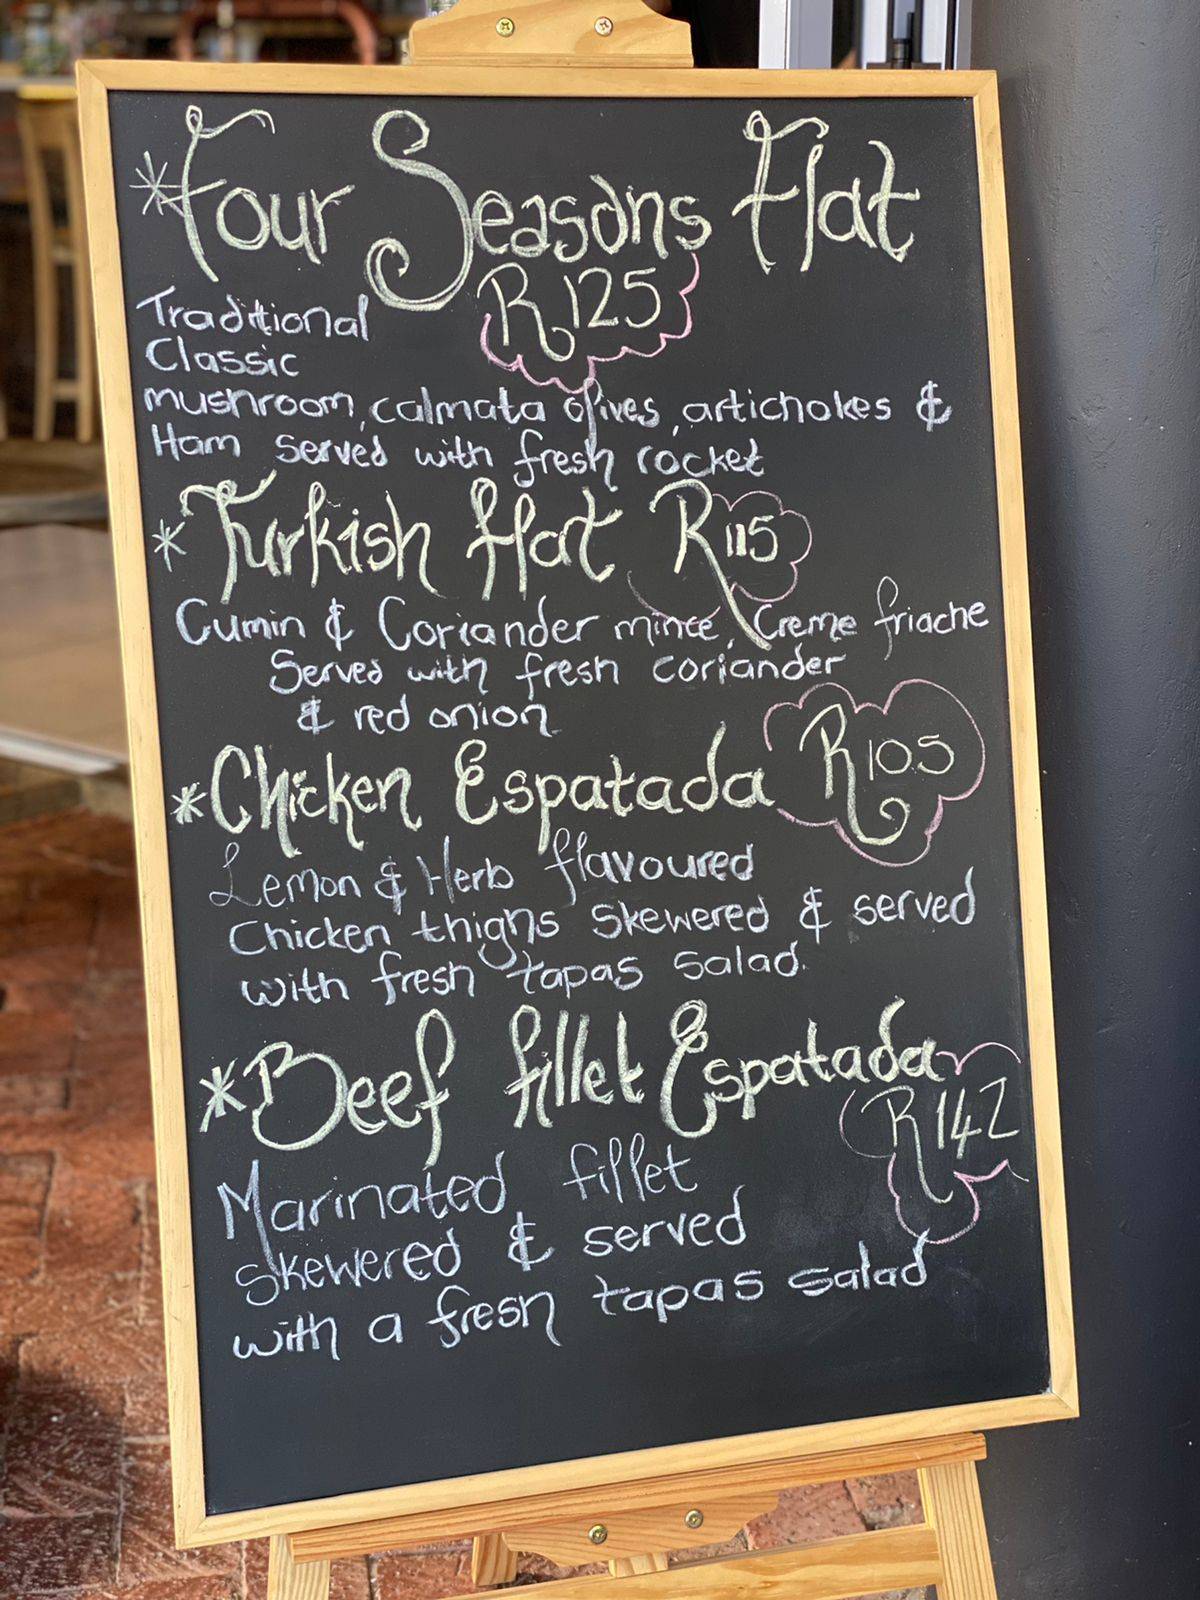 *Four Seasons Flat
R125
Traditional
Classic
mushroom, calmata olives, artichokes &
Ham served with fresh rocket
*Turkish flat R115
Cumin & Coriander mince, Creme friache
Served with fresh coriander
& red onion
*Chicken Espatada R105
Lemon & Herb flavoured
Chicken thighs skewered & served
with fresh tapas salad.
*Beef fillet Espatada
R142
Marinated fillet
skewered & served
with a fresh tapas salad